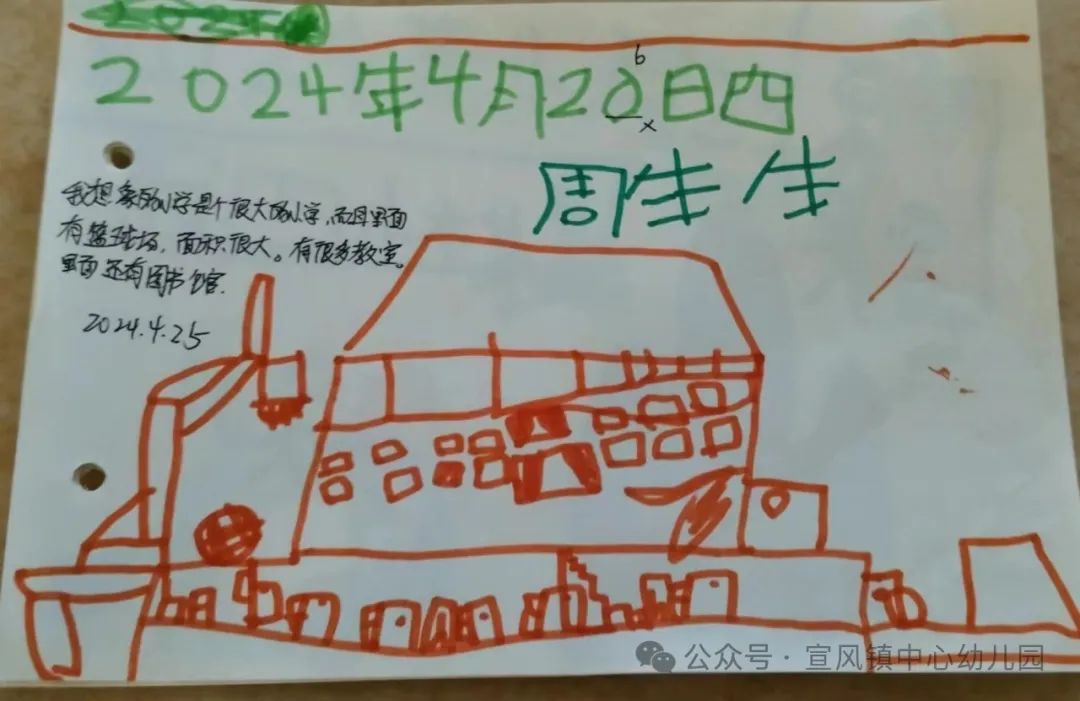 2024年4月20日四
6
×
周生生
我想象的小学是个很大的小学,而且里面
有篮球场,面积很大。有很多教室。
里面还有图书馆.
2024.4.25
公众号·宣风镇中心幼儿园